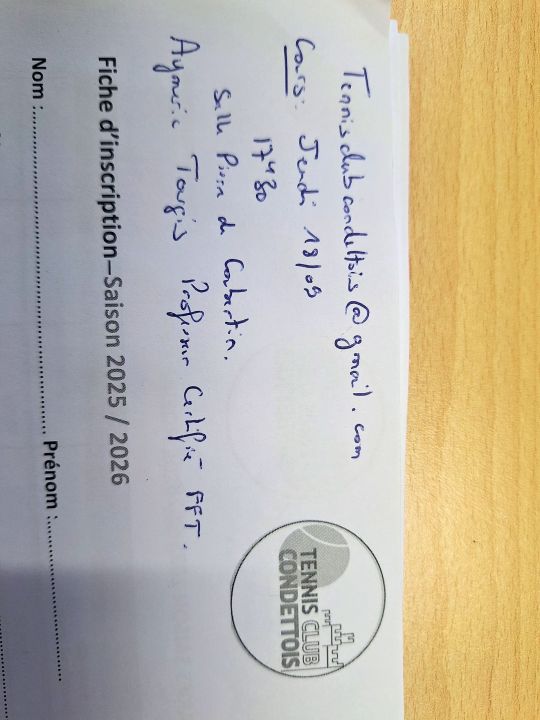 Tennisclubcondettois@gmail.com
Cours: Jeudi 18/09
17h30
Salle Pierre de Coubertin.
Aymeric Professeur Certifié FFT.
TENNIS CLUB
CONDETTOIS
Fiche d'inscription–Saison 2025 / 2026
Nom :.................................................. Prénom :..................................